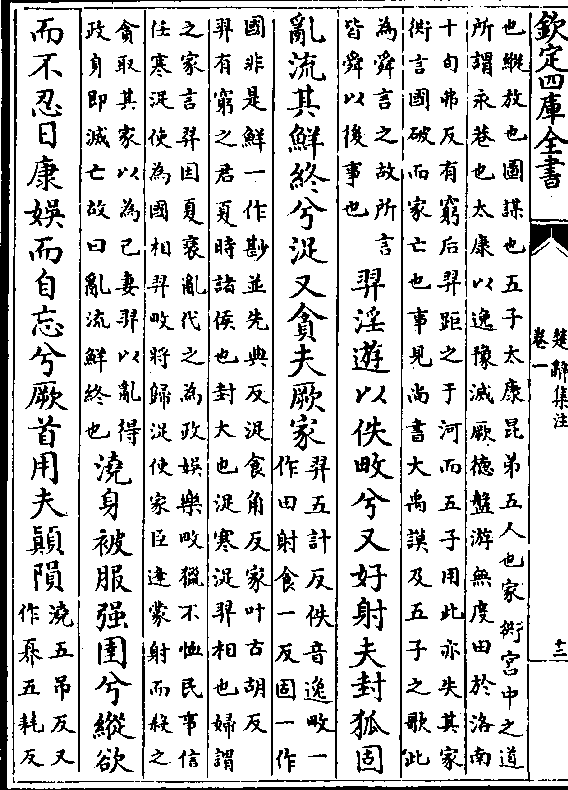 欽定四庫全書
楚辭集注
卷一
十三
也縱放也圖謀也五子太康昆弟五人也家衖宫中之道
所謂永巷也太康以逸豫滅厥德盤游無度田於洛南
十旬弗反有窮后羿距之于河而五子用此亦失其家
衖言國破而家亡也事見尚書大禹謨及五子之歌此
為舜言之故所言
皆舜以後事也
羿淫遊以佚畋兮又好射夫封狐固
亂流其鮮終兮浞又貪夫厥家
羿五計反佚音逸畋一
作田射食一反固一作
國非是鮮一作尠並先典反浞食角反家叶古胡反
羿有窮之君夏時諸侯也封大也浞寒浞羿相也婦謂
之家言羿因夏衰亂代之為政娛樂畋獵不恤民事信
任寒浞使為國相羿畋將歸浞使家臣逄蒙射而殺之
貪取其家以為己妻羿以亂得
政身即滅亡故曰亂流鮮終也
澆身被服强圉兮縱欲
而不忍日康娛而自忘兮厥首用夫顛隕
澆五吊反又
作奡五耗反